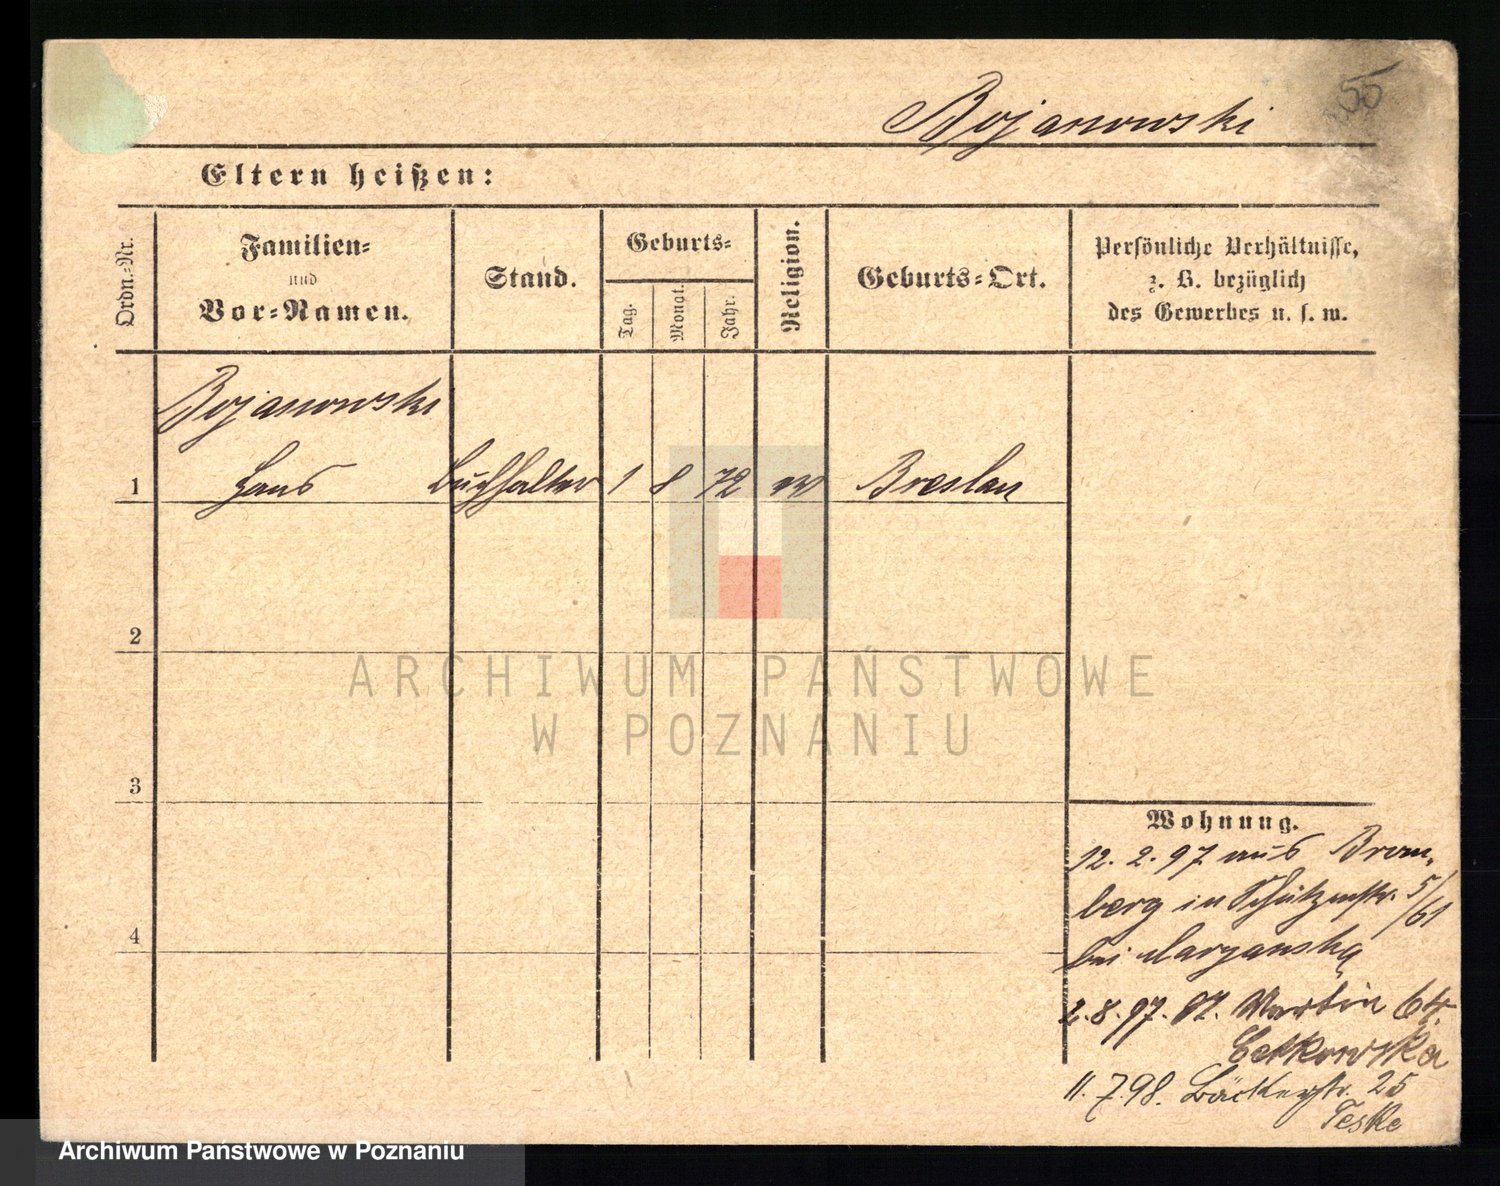 55
Bojanowski
Eltern heißen:
Ordn.-Nr.
Familien-
und
Vor-Namen.
Stand.
Geburts-
Tag.
Monat.
Jahr.
Religion.
Geburts-Ort.
Persönliche Verhältnisse,
z. B. bezüglich
des Gewerbes u. s. w.
Bojanowski
1 Hans Buchhalter 1 8 72 Breslau
2
3
4
Wohnung.
12. 2. 97 aus Brom-
berg in Schützenstr. 5/61
bei
2.8.97. Martin 64.
11.7.98. Bäckerstr. 25
Teske
ARCHIWUM PAŃSTWOWE
W POZNANIU
Archiwum Państwowe w Poznaniu